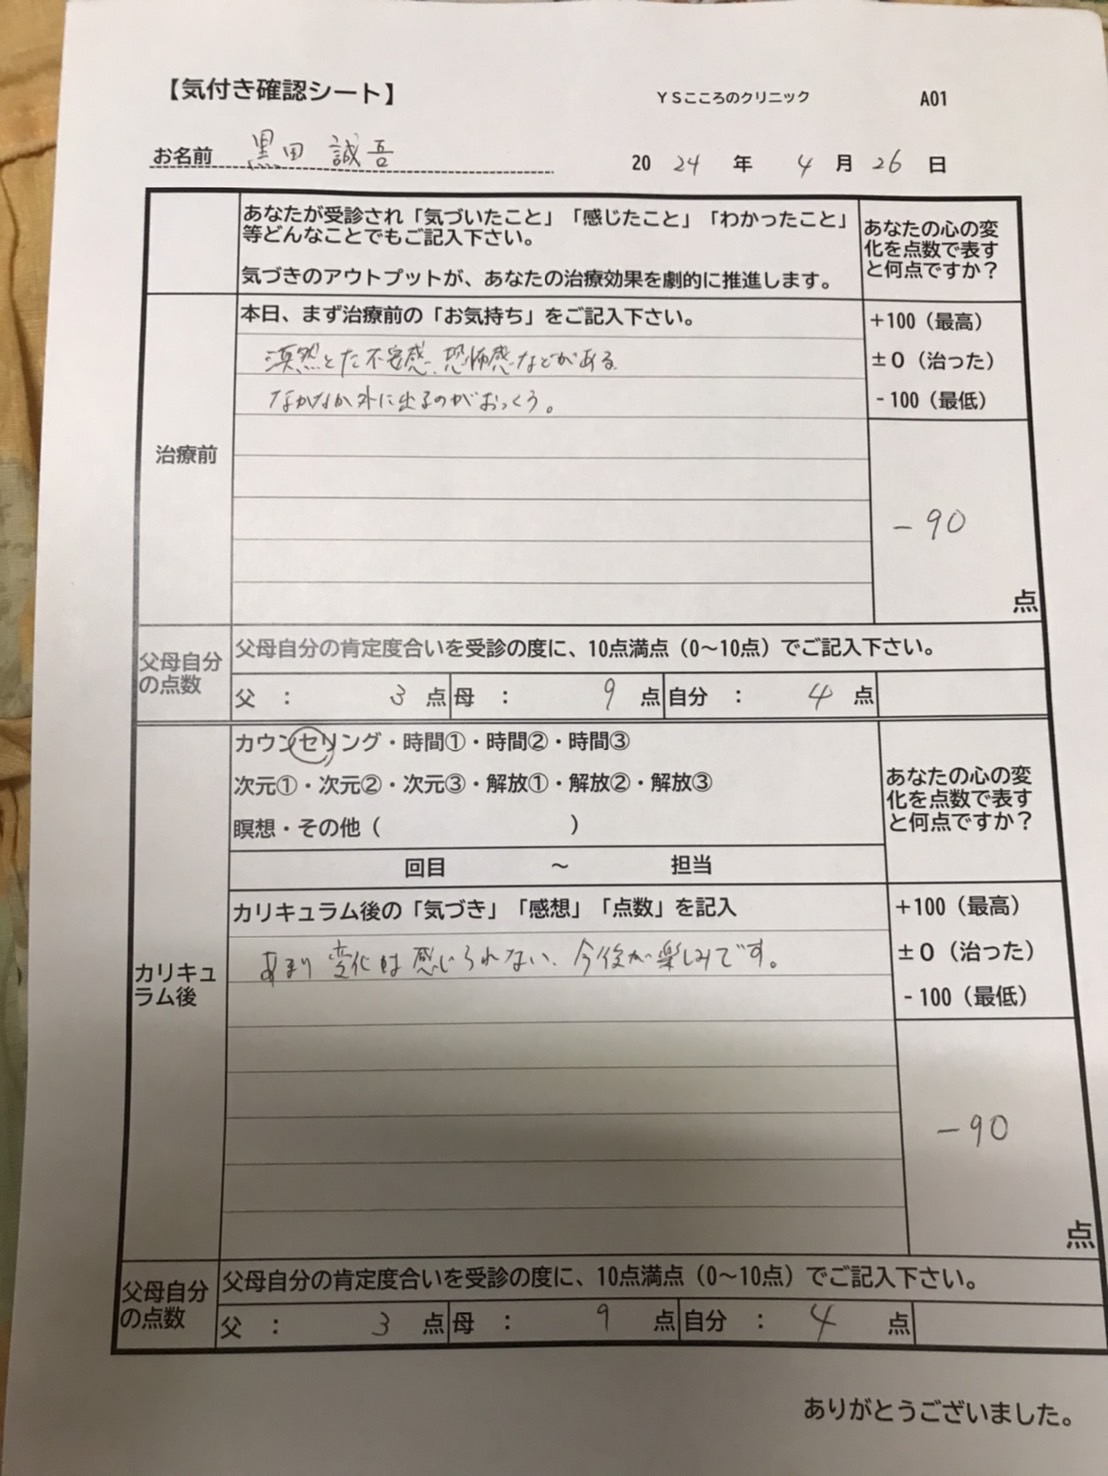 【気付き確認シート】 YSこころのクリニック A01
お名前 黒田 誠吾 20 24 年 4 月 26 日
あなたが受診され「気づいたこと」「感じたこと」「わかったこと」
等どんなことでもご記入下さい。
気づきのアウトプットが、あなたの治療効果を劇的に推進します。
あなたの心の変
化を点数で表す
と何点ですか？
治療前
本日、まず治療前の「お気持ち」をご記入下さい。
漠然とた不安感、恐怖感などがある
なかなか外に出るのがおっくう。
+100（最高）
±0（治った）
-100（最低）
-90
点
父母自分
の点数
父母自分の肯定度合いを受診の度に、10点満点（0～10点）でご記入下さい。
父 ： 3 点 母 ： 9 点 自分 ： 4 点
カウンセリング・時間①・時間②・時間③
次元①・次元②・次元③・解放①・解放②・解放③
瞑想・その他（ ）
回目 ～ 担当
あなたの心の変
化を点数で表す
と何点ですか？
カリキュ
ラム後
カリキュラム後の「気づき」「感想」「点数」を記入
あまり変化は感じられない、今後が楽しみです。
+100（最高）
±0（治った）
-100（最低）
-90
点
父母自分
の点数
父母自分の肯定度合いを受診の度に、10点満点（0～10点）でご記入下さい。
父 ： 3 点 母 ： 9 点 自分 ： 4 点
ありがとうございました。